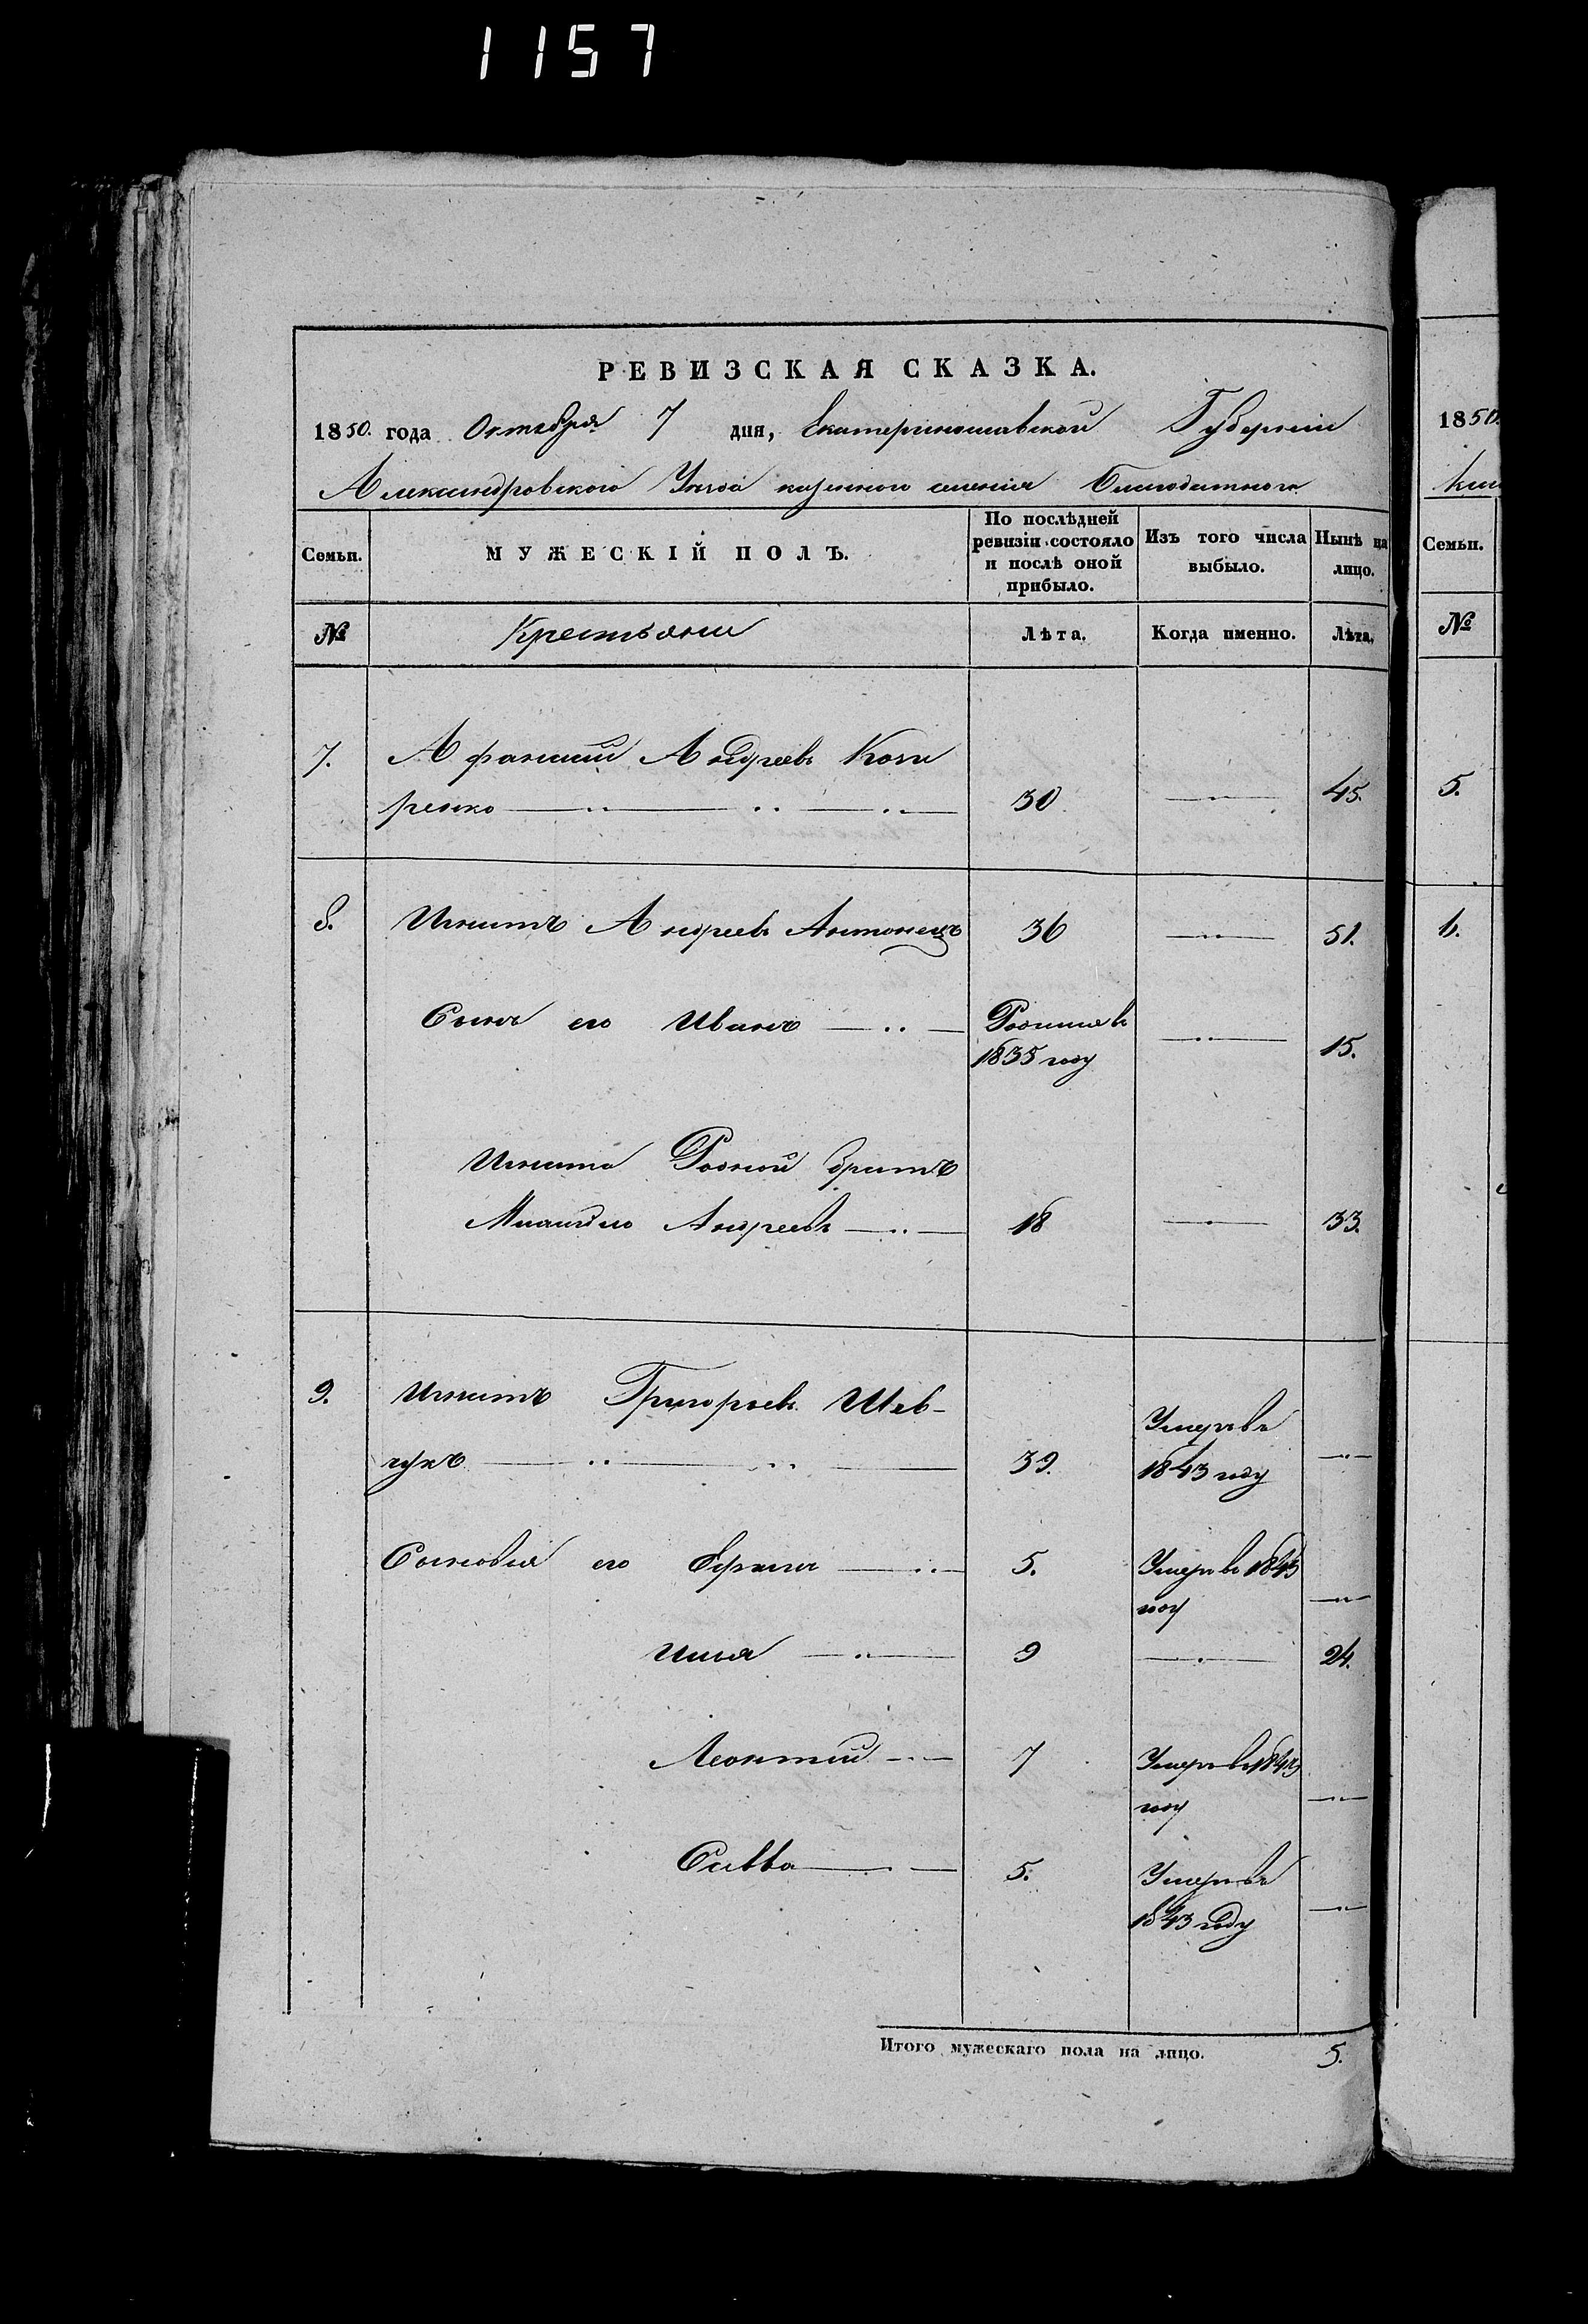 1157
РЕВИЗСКАЯ СКАЗКА.
1850. года Октября 7 дня, Екатеринославской Губернии
Александровского Уезда казенного селения Благодатного
Семьи.
МУЖЕСКІЙ ПОЛЪ.
По послѣдней ревизіи состояло и послѣ оной прибыло.
Изъ того числа выбыло.
Нынѣ на лицо.
№
Крестьяне
Лѣта.
Когда именно.
Лѣта.
7. Афанасий Андреевъ Кочи
ренко 30 45.
8. Игнатъ Андреевъ Антонецъ 36 51.
Сынъ его Иванъ Родился въ
1835 году 15.
Игната Родной братъ
Михайло Андреевъ 18 33.
9. Игнатъ Григорьевъ Шев-
чукъ 39. Умеръ въ
1843 году
Сыновья его Ефимъ 5. Умеръ въ 1843
году
Илья 9 24.
Леонтий 7 Умеръ въ
году
Савва 5. Умеръ въ
1843 году
Итого мужескаго пола на лицо. 5.
1850.
Семьи.
№
5.
6.